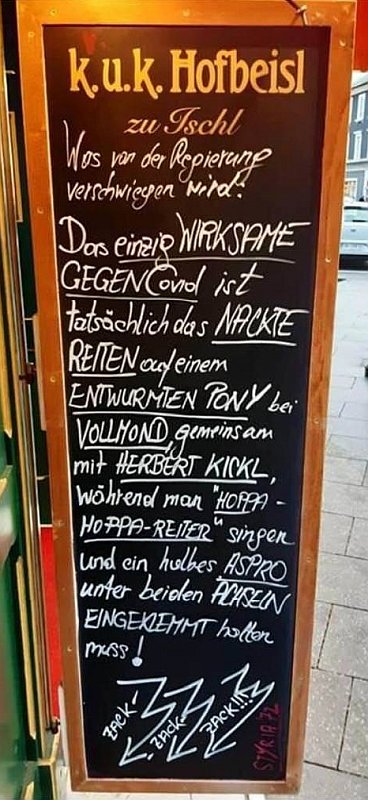 k.u.k. Hofbeisl
zu Ischl
Was von der Regierung
verschwiegen wird:
Das einzig WIRKSAME
GEGEN Covid ist
tatsächlich das NACKTE
REITEN auf einem
ENTWURMTEN PONY bei
VOLLMOND, gemeinsam
mit HERBERT KICKL,
während man "HOPPA-
HOPPA-REITER" singen
und ein halbes ASPRO
unter beiden ACHSELN
EINGEKLEMMT halten
muss!
ZACK-
ZACK-
ZACK!!!!
STYRIA72